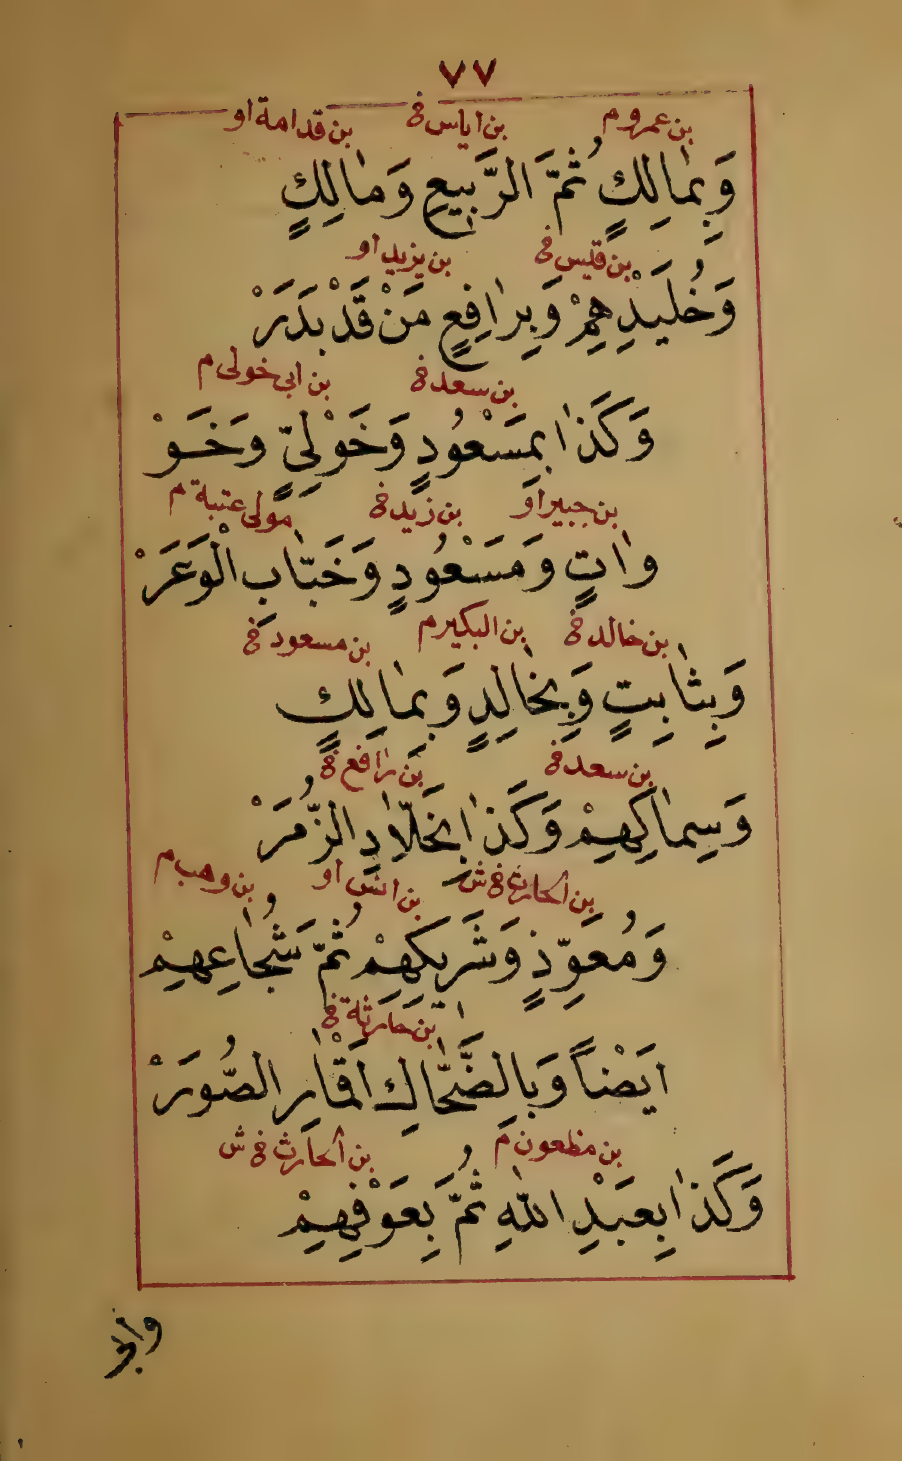 ٧٧
بن عمرو م بن اياس ڡ بن قدامة او
وَبِمٰالِكٍ ثُمَّ الرَّبيعِ وَمٰالِكٍ
بن قيس ڡ بن يزيد او
وَخُلَيْدِهِمْ وَبِرٰافِعٍ مَنْ قَدْ بَدَرْ
بن سعد ڡ بن ابي خولى م
وَكَذٰا بِمَسْعُودٍ وَخَوْلِيٍّ وَخَوْ
بن جبير او بن زيد ڡ مولى عتبة م
وٰاتٍ وَمَسْعُودٍ وَخَبّٰابِ الْوَعَرْ
بن خالد ڡ بن البكير م بن مسعود ڡ
وَبِثٰابِتٍ وَبِخٰالِدٍ وَبِمٰالِكٍ
بن سعد ڡ بن رافع ڡ
وَسِمٰاكِهِمْ وَكَذٰا بِخَلّٰادِ الزُّمَرْ
بن الحارث ڡ ش بن انس او بن وهب م
وَمُعَوِّذٍ وَشَرِيكِهِمْ ثُمَّ شُجٰاعِهِمْ
بن حارثة ڡ
ايَضْناً وَبِالضَّحّٰاكِ اَقْمٰارِ الصُّوَرْ
بن مظعون م بن الحارث ڡ ش
وَكَذٰا بِعَبْدِ اللهِ ثُمَّ بِعَوْفِهِمْ